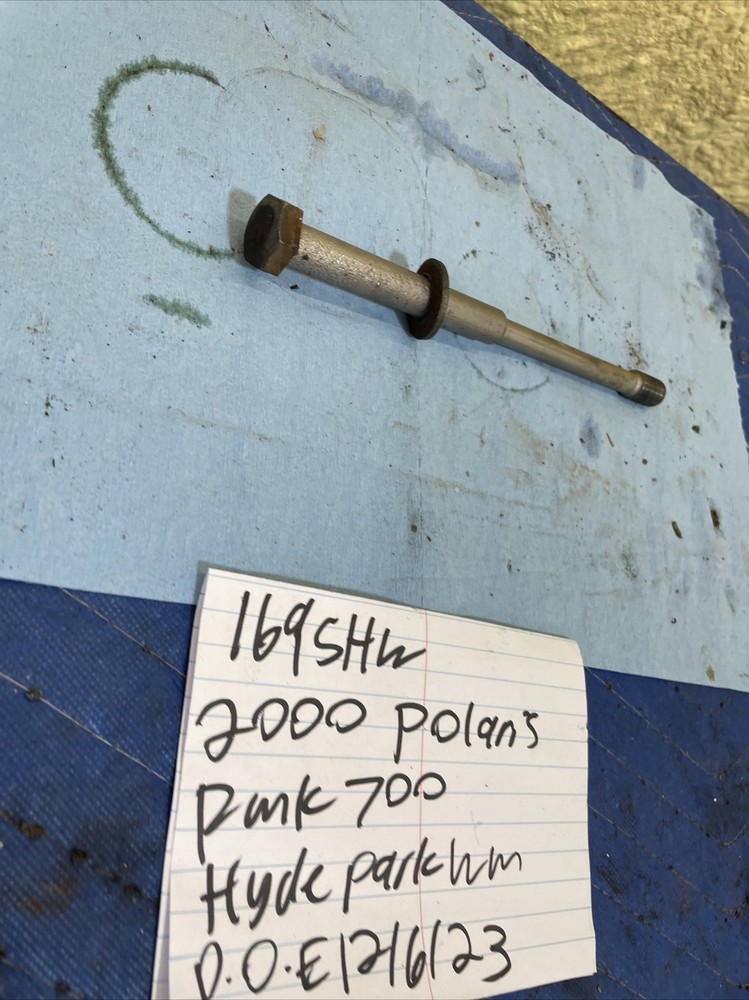 169SHW
2000 Polaris
700
Hyde park
D.O.E 12/6/23